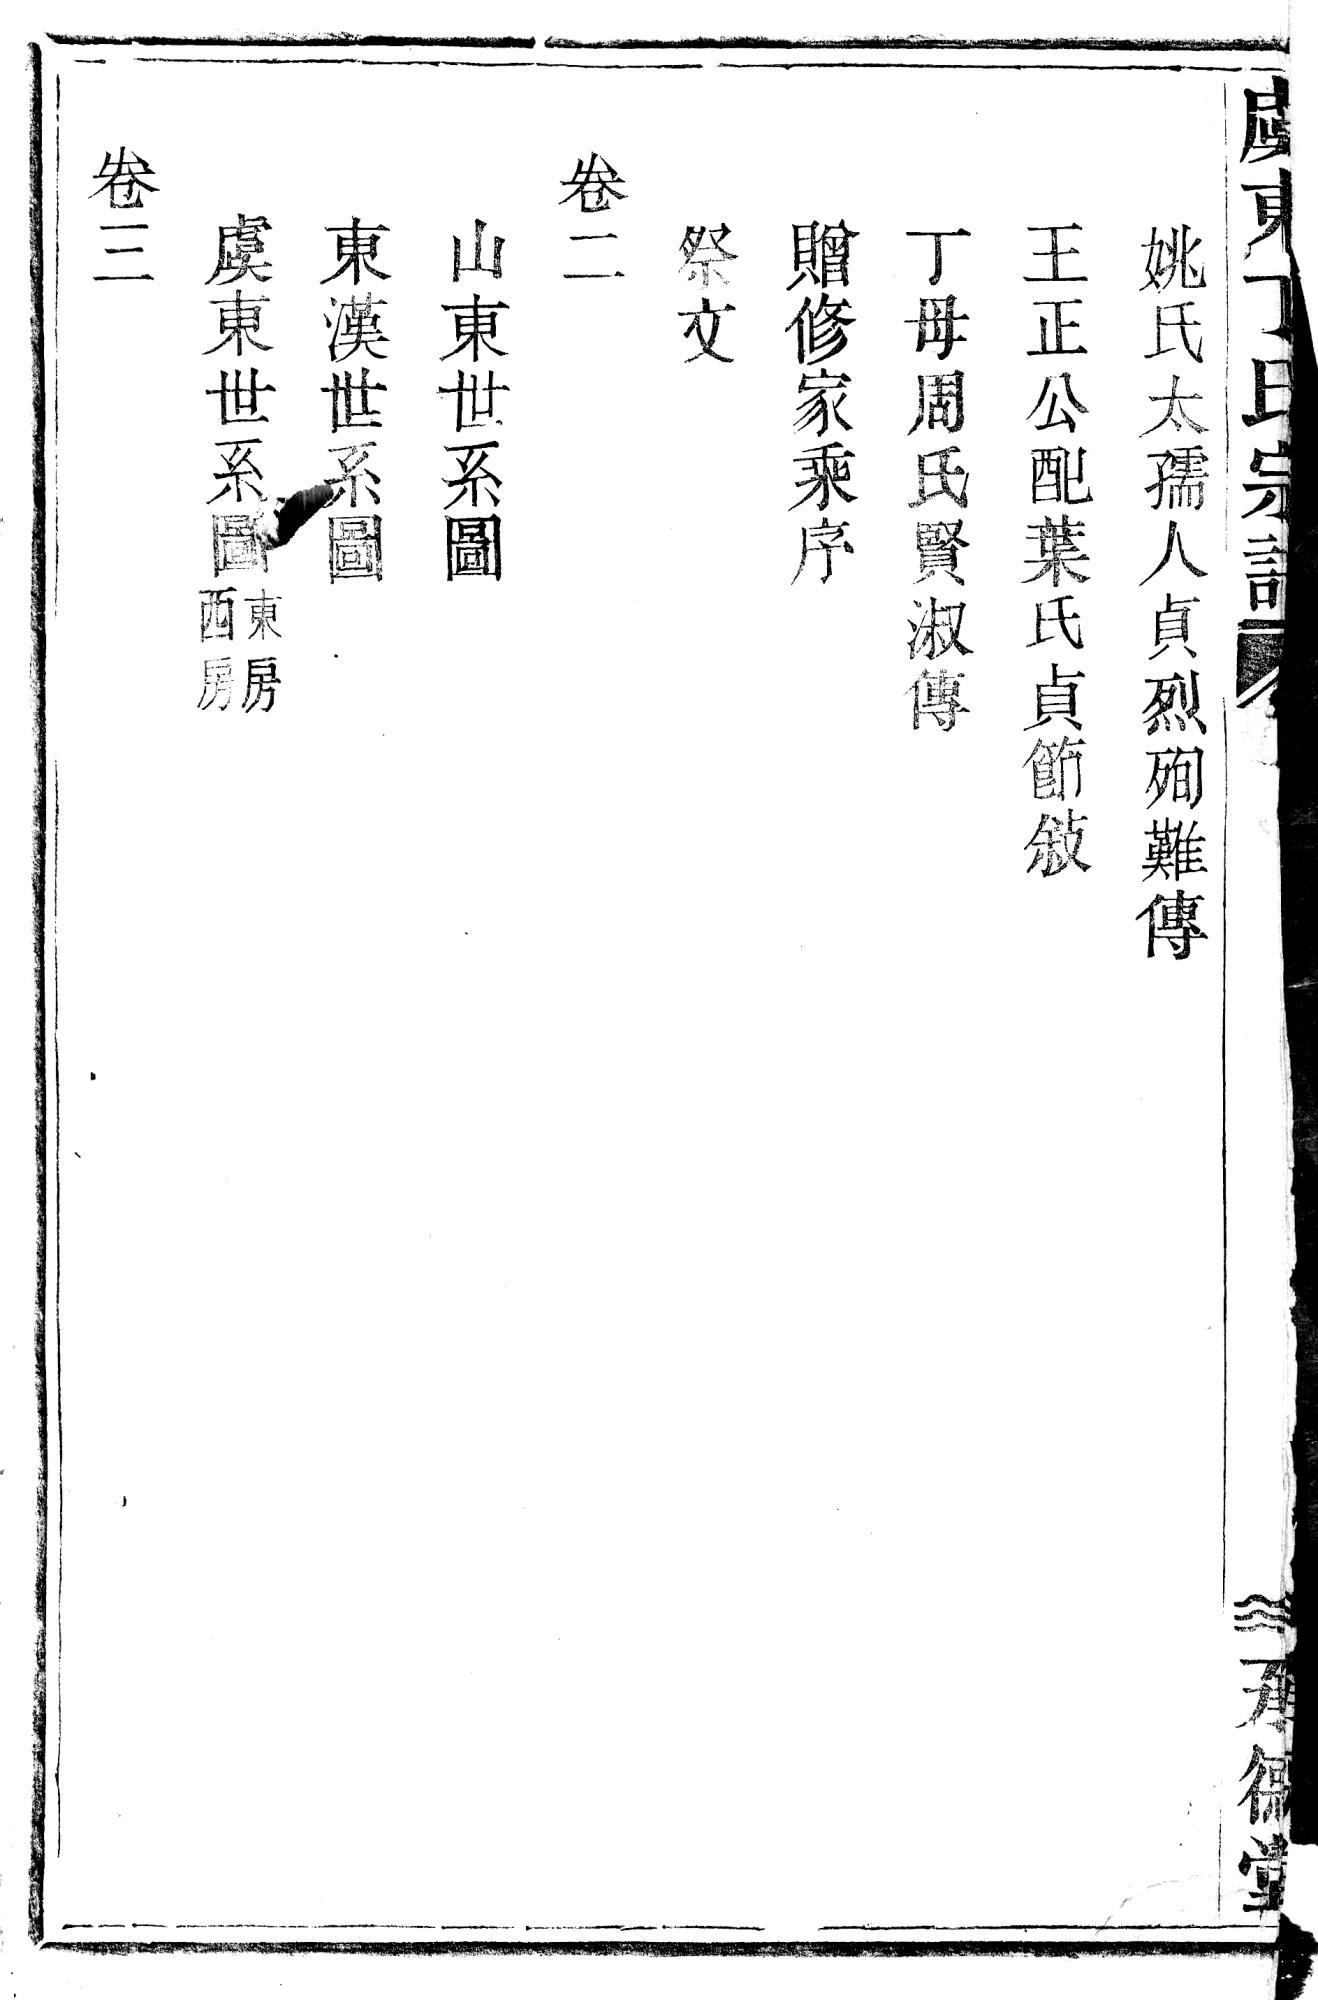 虞東丁氏宗譜
承德堂
姚氏太孺人貞烈殉難傳
王正公配葉氏貞節敍
丁母周氏賢淑傳
贈修家乘序
祭文
卷二
山東世系圖
東漢世系圖
虞東世系圖
東房
西房
卷三